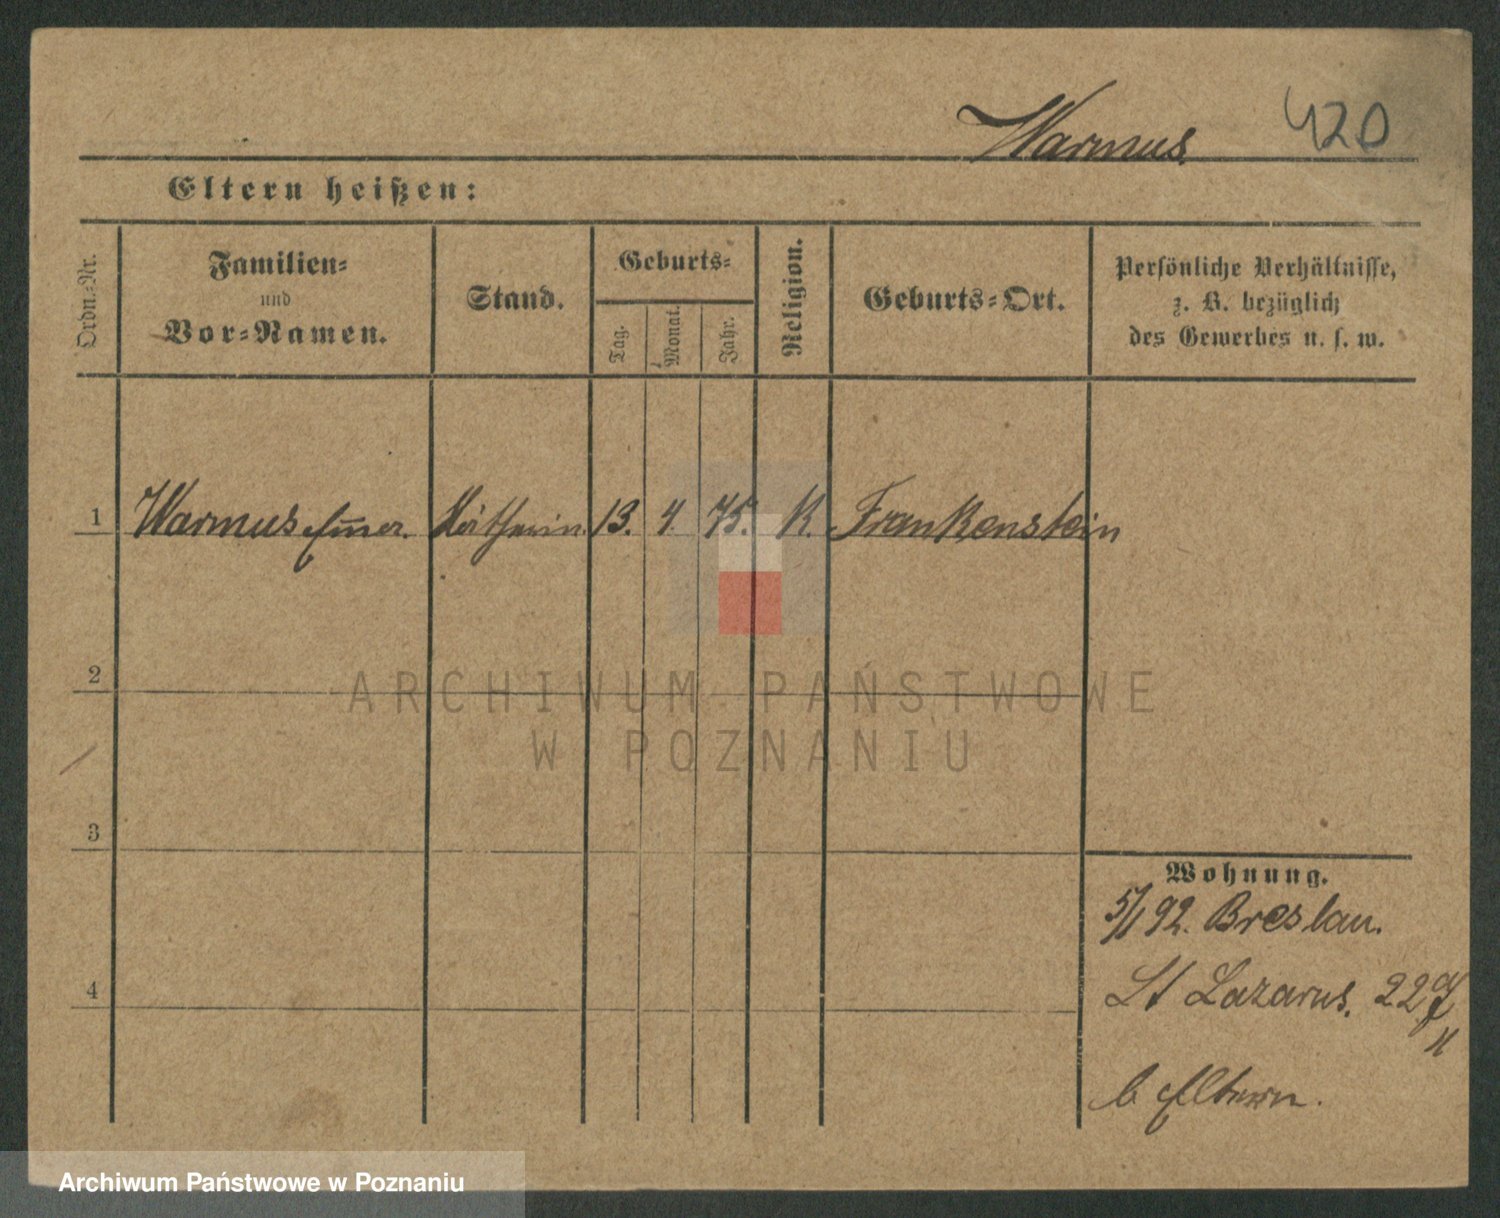 Warmus. 420
Eltern heißen:
Ordn.-Nr.
Familien-
und
Vor-Namen.
Stand.
Geburts-
Tag.
Monat.
Jahr.
Religion.
Geburts-Ort.
Persönliche Verhältnisse,
z. B. bezüglich
des Gewerbes u. s. w.
1 Warmus Näherin. 13. 4. 75. K. Frankenstein
2
3
4
Wohnung.
5/1 92. Breslau.
St Lazarus. 22
b Eltern.
ARCHIWUM PAŃSTWOWE
W POZNANIU
Archiwum Państwowe w Poznaniu